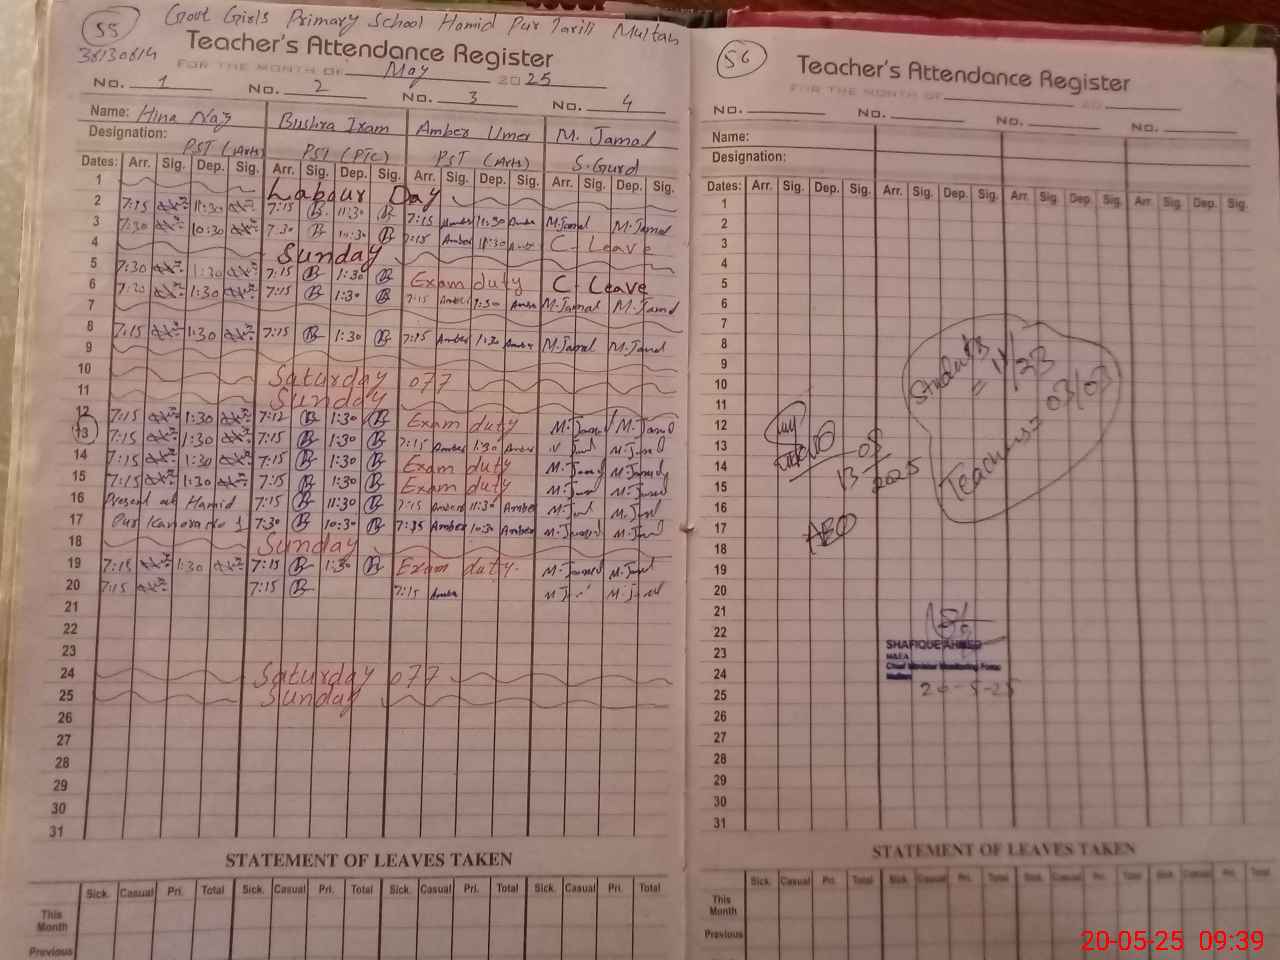 55
Govt Girls Primary School Hamid Pur Multan
Teacher's Attendance Register
FOR THE MONTH OF May 2025
No. 1 No. 2 No. 3 No. 4
Name: Hina Naz Bushra Iram Amber Umer M. Jamal
Designation: PST (Arts) PST (PTC) PST (Arts) S.Gurd
Dates: Arr. Sig. Dep. Sig. Arr. Sig. Dep. Sig. Arr. Sig. Dep. Sig. Arr. Sig. Dep. Sig.
1 Labour Day
2 7:15 11:30 7:15 11:30 7:15 Amber 11:30 Amber M.Jamal M.Jamal
3 7:30 10:30 7:30 10:30 7:15 Amber Amber C-Leave
4 Sunday
5 7:30 1:30 7:15 1:30 Exam duty C-Leave
6 1:30 7:15 1:30 7:15 Amber 1:30 Amber M.Jamal M.Jamal
7
8 7:15 1:30 7:15 1:30 7:15 Amber 1:30 Amber M.Jamal M.Jamal
9
10 Saturday off
11 Sunday
12 7:15 1:30 7:12 1:30 Exam duty M.Jamal M.Jamal
13 7:15 1:30 7:15 1:30 7:15 Amber 1:30 Amber M.Jamal
14 7:15 1:30 7:15 1:30 Exam duty M.Jamal M.Jamal
15 7:15 1:30 7:15 1:30 Exam duty M.Jamal M.Jamal
16 Present at Hamid 7:15 11:30 7:15 Amber 11:30 Amber M.Jamal M.Jamal
17 Pur No 1 7:30 10:30 Amber 10:30 Amber M.Jamal M.Jamal
18 Sunday
19 7:15 1:30 7:15 1:30 Exam duty. M.Jamal M.Jamal
20 7:15 7:15 7:15 Amber
21
22
23
24 Saturday off
25 Sunday
26
27
28
29
30
31
STATEMENT OF LEAVES TAKEN
Sick. Casual Pri. Total Sick. Casual Pri. Total Sick. Casual Pri. Total Sick. Casual Pri. Total
This Month
Previous
56
Teacher's Attendance Register
FOR THE MONTH OF 20
No. No. No. No.
Name:
Designation:
Dates: Arr. Sig. Dep. Sig. Arr. Sig. Dep. Sig. Arr. Sig. Dep. Sig. Arr. Sig. Dep. Sig.
1
2
3
4
5
6
7
8
9
10
11
12
13
14
15
16
17
18
19
20
21
22
23
24
25
26
27
28
29
30
31
Students = 11/23
Teachers = 03/03
13 05 2025
AEO
SHAFIQUE AHMED
M&EA
Chief Minister Monitoring Force
Multan
20-5-25
STATEMENT OF LEAVES TAKEN
Sick. Casual Pri. Total Sick. Casual Pri. Total Sick. Casual Pri. Total Sick. Casual Pri. Total
This Month
Previous
20-05-25 09:39